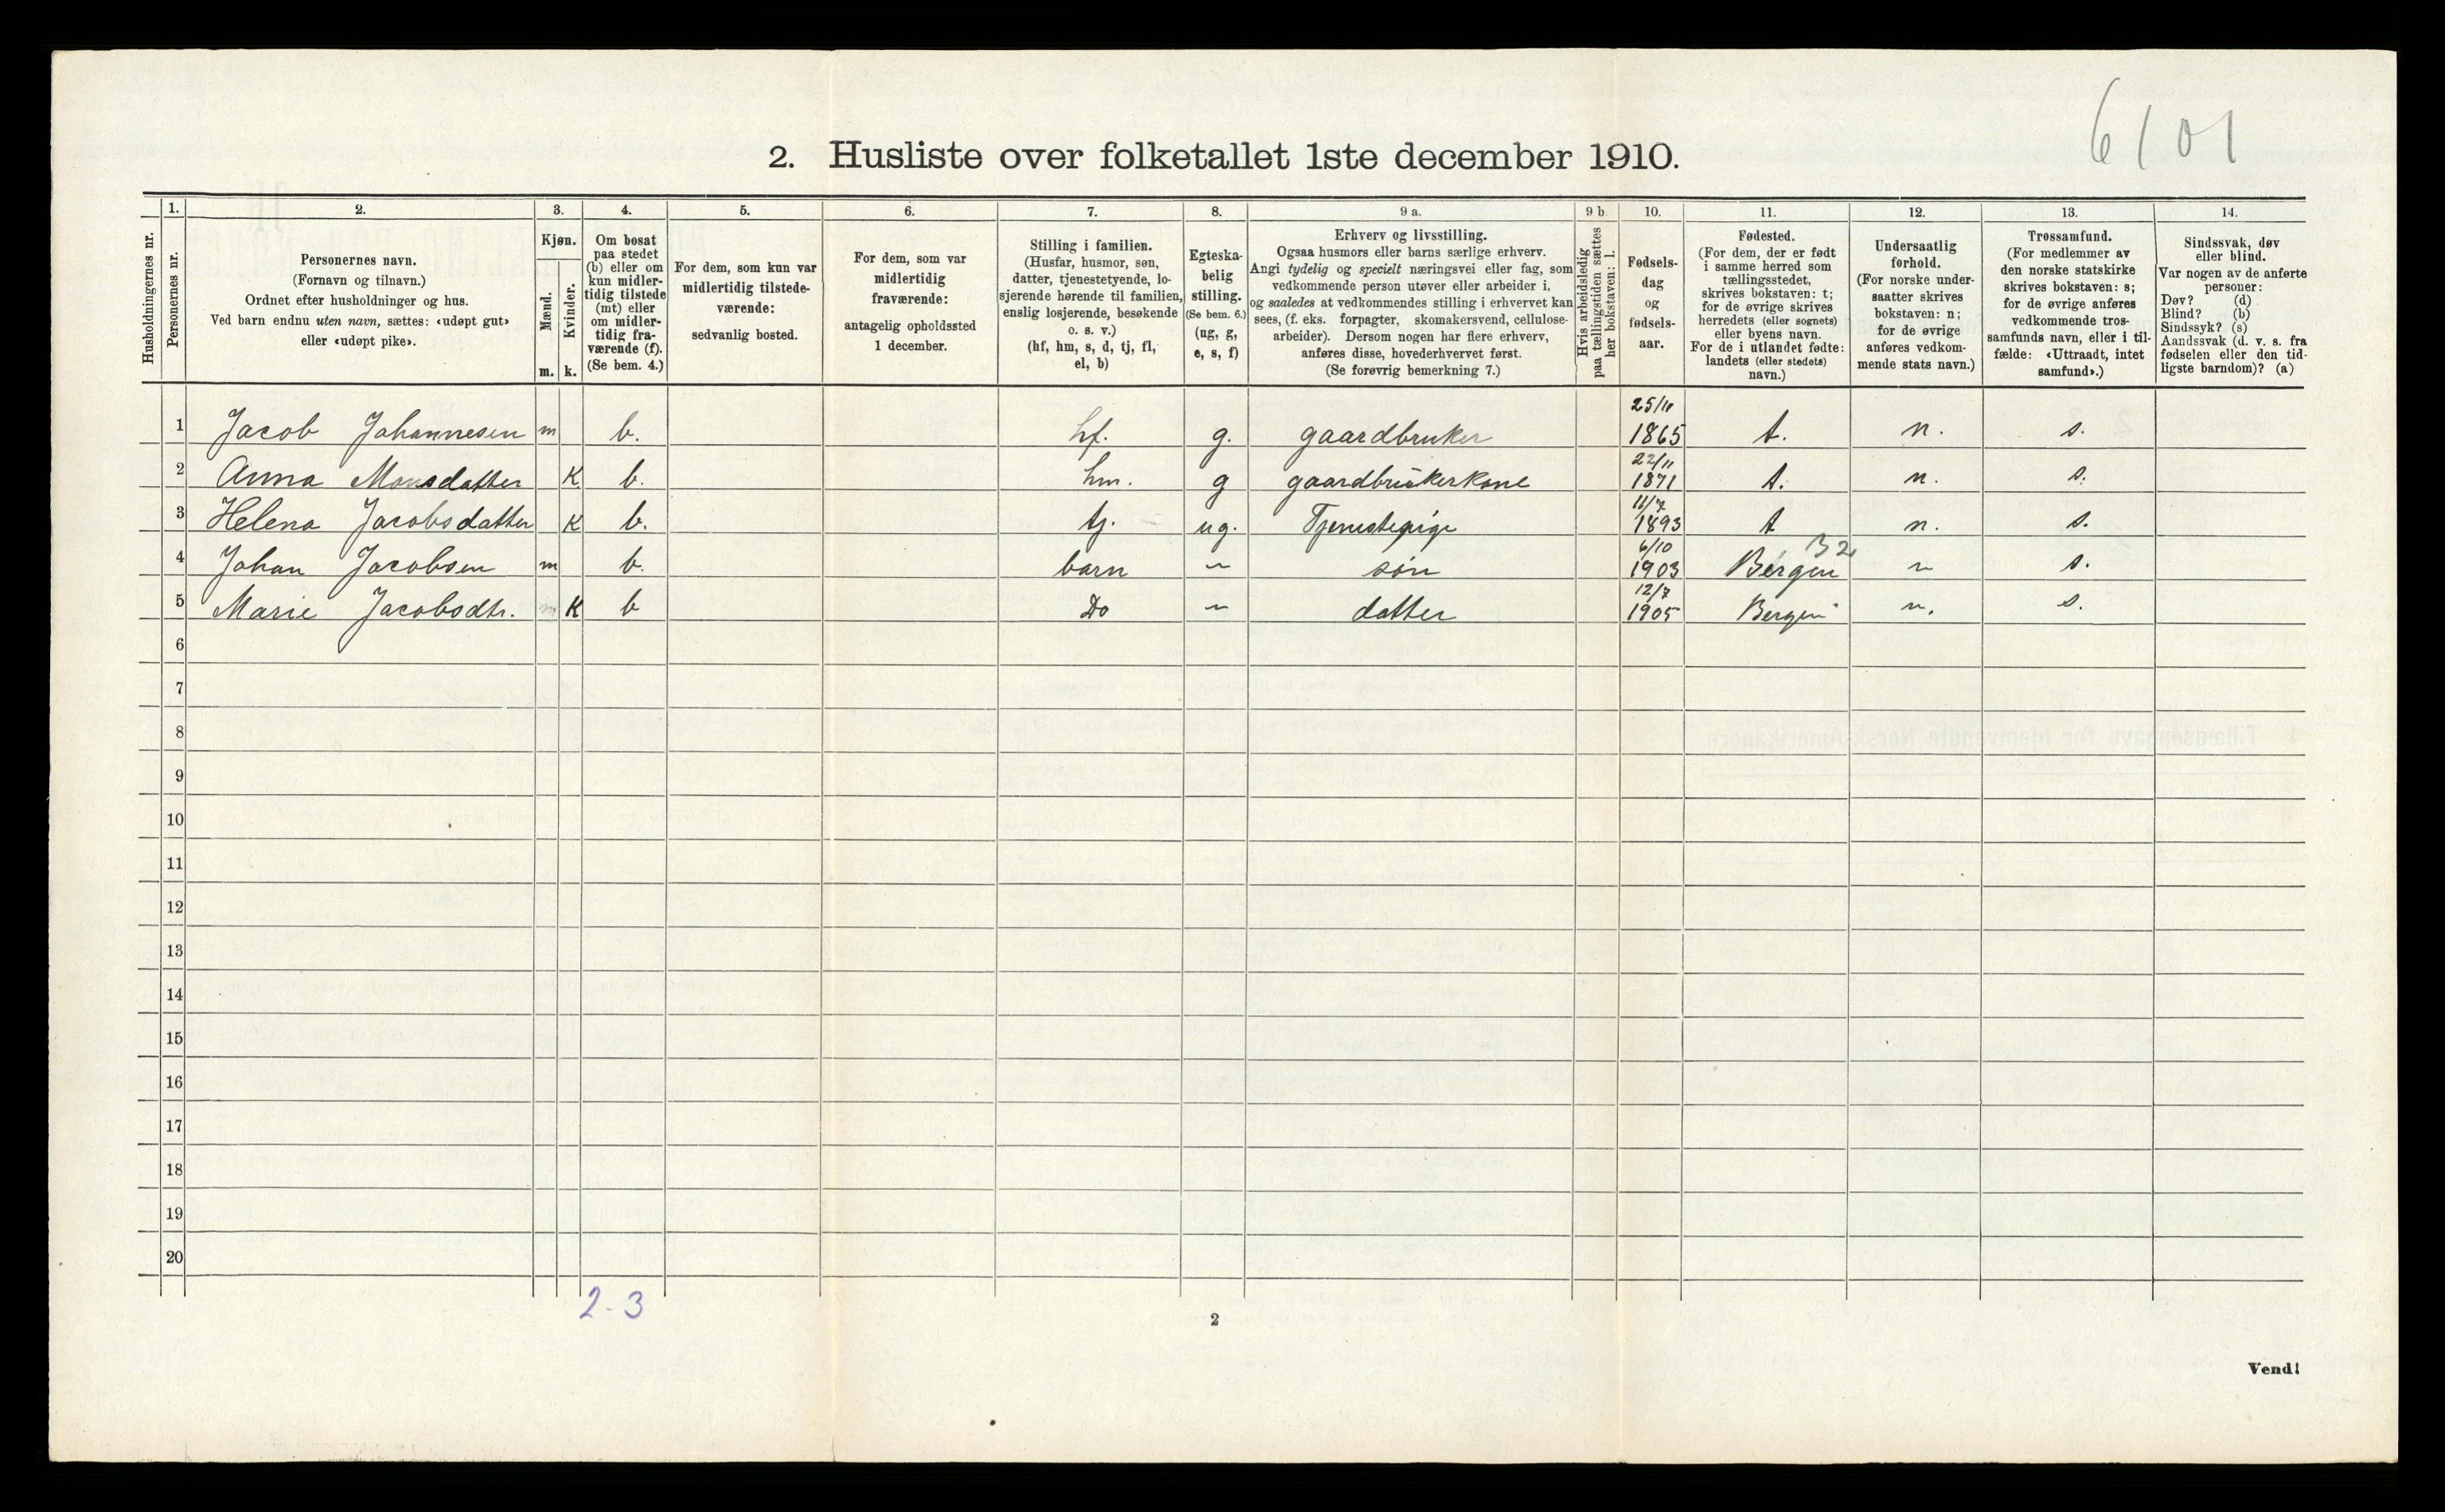 6101
2. Husliste over folketallet 1ste december 1910.
Husholdningernes nr.
1. Personernes nr.
2.
Personernes navn.
(Fornavn og tilnavn.)
Ordnet efter husholdninger og hus.
Ved barn endnu uten navn, sættes: «udøpt gut»
eller «udøpt pike».
3.
Kjøn.
Mænd.
Kvinder.
m. k.
4.
Om bosat
paa stedet
(b) eller om
kun midler-
tidig tilstede
(mt) eller
om midler-
tidig fra-
værende (f).
(Se bem. 4.)
5.
For dem, som kun var
midlertidig tilstede-
værende:
sedvanlig bosted.
6.
For dem, som var
midlertidig
fraværende:
antagelig opholdssted
1 december.
7.
Stilling i familien.
(Husfar, husmor, søn,
datter, tjenestetyende, lo-
sjerende hørende til familien,
enslig losjerende, besøkende
o. s. v.)
(hf, hm, s, d, tj, fl,
el, b)
8.
Egteska-
belig
stilling.
(Se bem. 6.)
(ug, g,
e, s, f)
9 a.
Erhverv og livsstilling.
Ogsaa husmors eller barns særlige erhverv.
Angi tydelig og specielt næringsvei eller fag, som
vedkommende person utøver eller arbeider i,
og saaledes at vedkommendes stilling i erhvervet kan
sees, (f. eks. forpagter, skomakersvend, cellulose-
arbeider). Dersom nogen har flere erhverv,
anføres disse, hovederhvervet først.
(Se forøvrig bemerkning 7.)
9 b.
Hvis arbeidsledig
paa tællingstiden sættes
her bokstaven: l.
10.
Fødsels-
dag
og
fødsels-
aar.
11.
Fødested.
(For dem, der er født
i samme herred som
tællingsstedet,
skrives bokstaven: t;
for de øvrige skrives
herredets (eller sognets)
eller byens navn.
For de i utlandet fødte:
landets (eller stedets)
navn.)
12.
Undersaatlig
forhold.
(For norske under-
saatter skrives
bokstaven: n;
for de øvrige
anføres vedkom-
mende stats navn.)
13.
Trossamfund.
(For medlemmer av
den norske statskirke
skrives bokstaven: s;
for de øvrige anføres
vedkommende tros-
samfunds navn, eller i til-
fælde: «Uttraadt, intet
samfund».)
14.
Sindssvak, døv
eller blind.
Var nogen av de anførte
personer:
Døv? (d)
Blind? (b)
Sindssyk? (s)
Aandssvak (d. v. s. fra
fødselen eller den tid-
ligste barndom)? (a)
1 Jacob Johannesen m b. hf. g. gaardbruker 25/11 1865 t. n. s.
2 Anna Monsdatter K b. hm. g gaardbrukerkone 22/11 1871 t. n. s.
3 Helena Jacobsdatter K b. tj. ug. Tjenestepige 11/7 1893 t n. s.
4 Johan Jacobsen m b. barn - søn 6/10 1903 Bergen 32 n s.
5 Marie Jacobsdtr. m K b Do - datter 12/7 1905 Bergen n. s.
6
7
8
9
10
11
12
13
14
15
16
17
18
19
20
2-3
2
Vend!